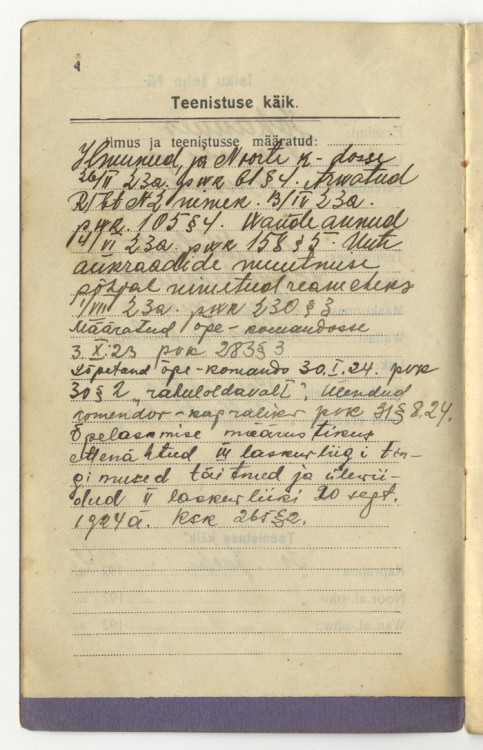 Teenistuse käik.
Ilmus ja teenistusse määratud:
Ilmunud ja Noorte k-dosse
26/II 23a. pvk 61 § 4. Arvatud
nimek. 13/IV 23a.
pvk. 105 § 4. Wande annud
4/VI 23a. pvk 158 § 5. Uute
aukraadide muutmise
põhjal nimetud reameheks
1/VIII 23a. pvk 230 § 3
Määratud õpe-komandosse
3.X.23 pvk 283 § 3
Lõpetand õpe-komando 30.I.24. pvk
30 § 2 "rahuloldavalt", Ülendud
komendor-kapraliks pvk 31 § 8.24.
Õpelaskmise määrustikus
ettenähtud III laskurliigi tin-
gimused täitnud ja üleviidud
II laskurliiki 20 sept.
1924 a. KSK 265 § 2.